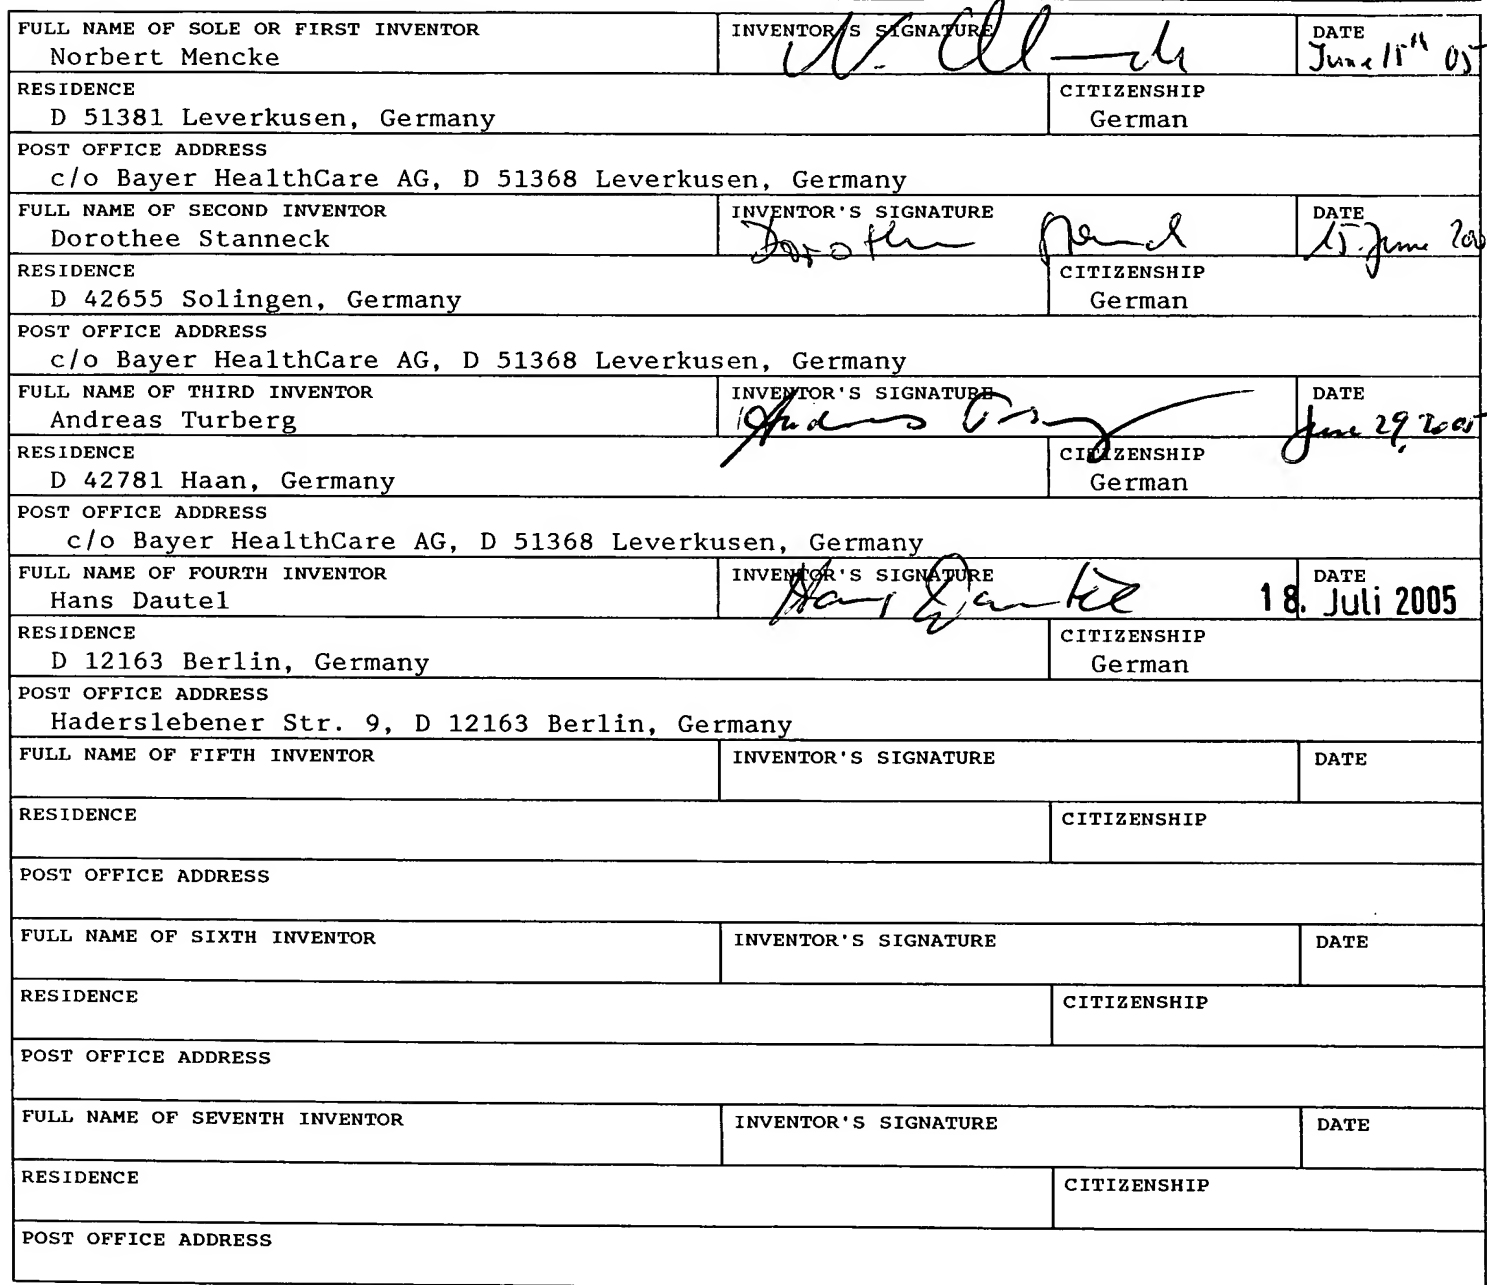 FULL NAME OF SOLE OR FIRST INVENTOR INVENTOR'S SIGNATURE DATE
Norbert Mencke N. June 15th 05
RESIDENCE CITIZENSHIP
D 51381 Leverkusen, Germany German
POST OFFICE ADDRESS
c/o Bayer HealthCare AG, D 51368 Leverkusen, Germany
FULL NAME OF SECOND INVENTOR INVENTOR'S SIGNATURE DATE
Dorothee Stanneck Dorothee 15. June
RESIDENCE CITIZENSHIP
D 42655 Solingen, Germany German
POST OFFICE ADDRESS
c/o Bayer HealthCare AG, D 51368 Leverkusen, Germany
FULL NAME OF THIRD INVENTOR INVENTOR'S SIGNATURE DATE
Andreas Turberg Andreas June 29, 2005
RESIDENCE CITIZENSHIP
D 42781 Haan, Germany German
POST OFFICE ADDRESS
c/o Bayer HealthCare AG, D 51368 Leverkusen, Germany
FULL NAME OF FOURTH INVENTOR INVENTOR'S SIGNATURE DATE
Hans Dautel Hans Dautel 18. Juli 2005
RESIDENCE CITIZENSHIP
D 12163 Berlin, Germany German
POST OFFICE ADDRESS
Haderslebener Str. 9, D 12163 Berlin, Germany
FULL NAME OF FIFTH INVENTOR INVENTOR'S SIGNATURE DATE
RESIDENCE CITIZENSHIP
POST OFFICE ADDRESS
FULL NAME OF SIXTH INVENTOR INVENTOR'S SIGNATURE DATE
RESIDENCE CITIZENSHIP
POST OFFICE ADDRESS
FULL NAME OF SEVENTH INVENTOR INVENTOR'S SIGNATURE DATE
RESIDENCE CITIZENSHIP
POST OFFICE ADDRESS